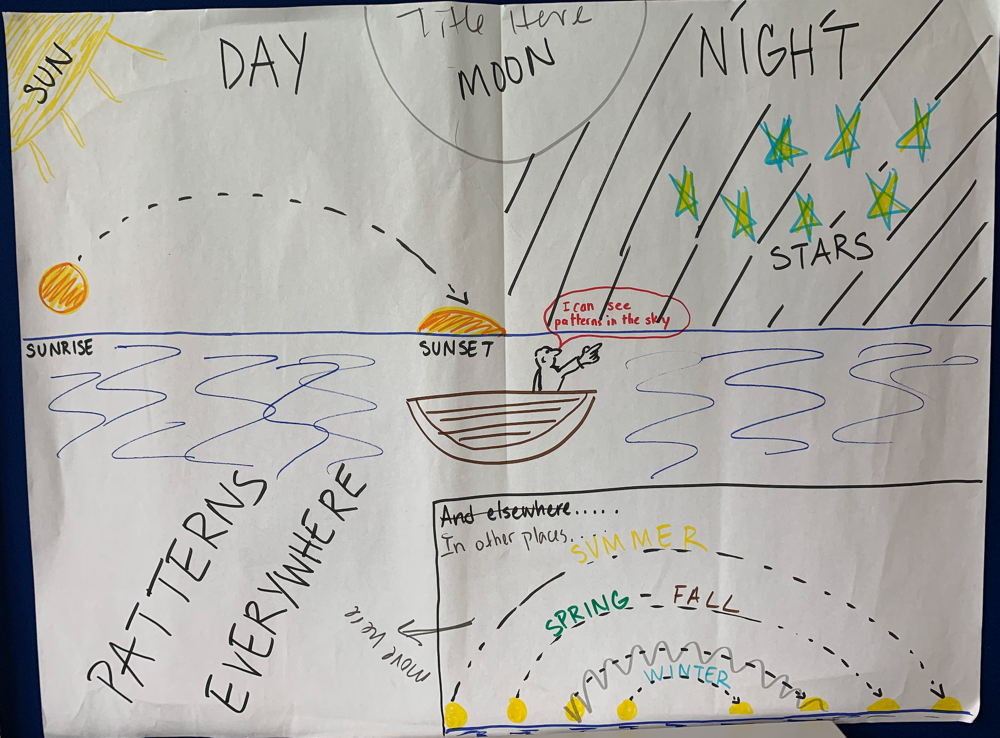 Title Here
SUN
DAY
MOON
NIGHT
STARS
I can see
patterns in the sky
SUNRISE
SUNSET
PATTERNS
EVERYWHERE
And elsewhere.....
In other places....
SUMMER
SPRING
FALL
move here
WINTER